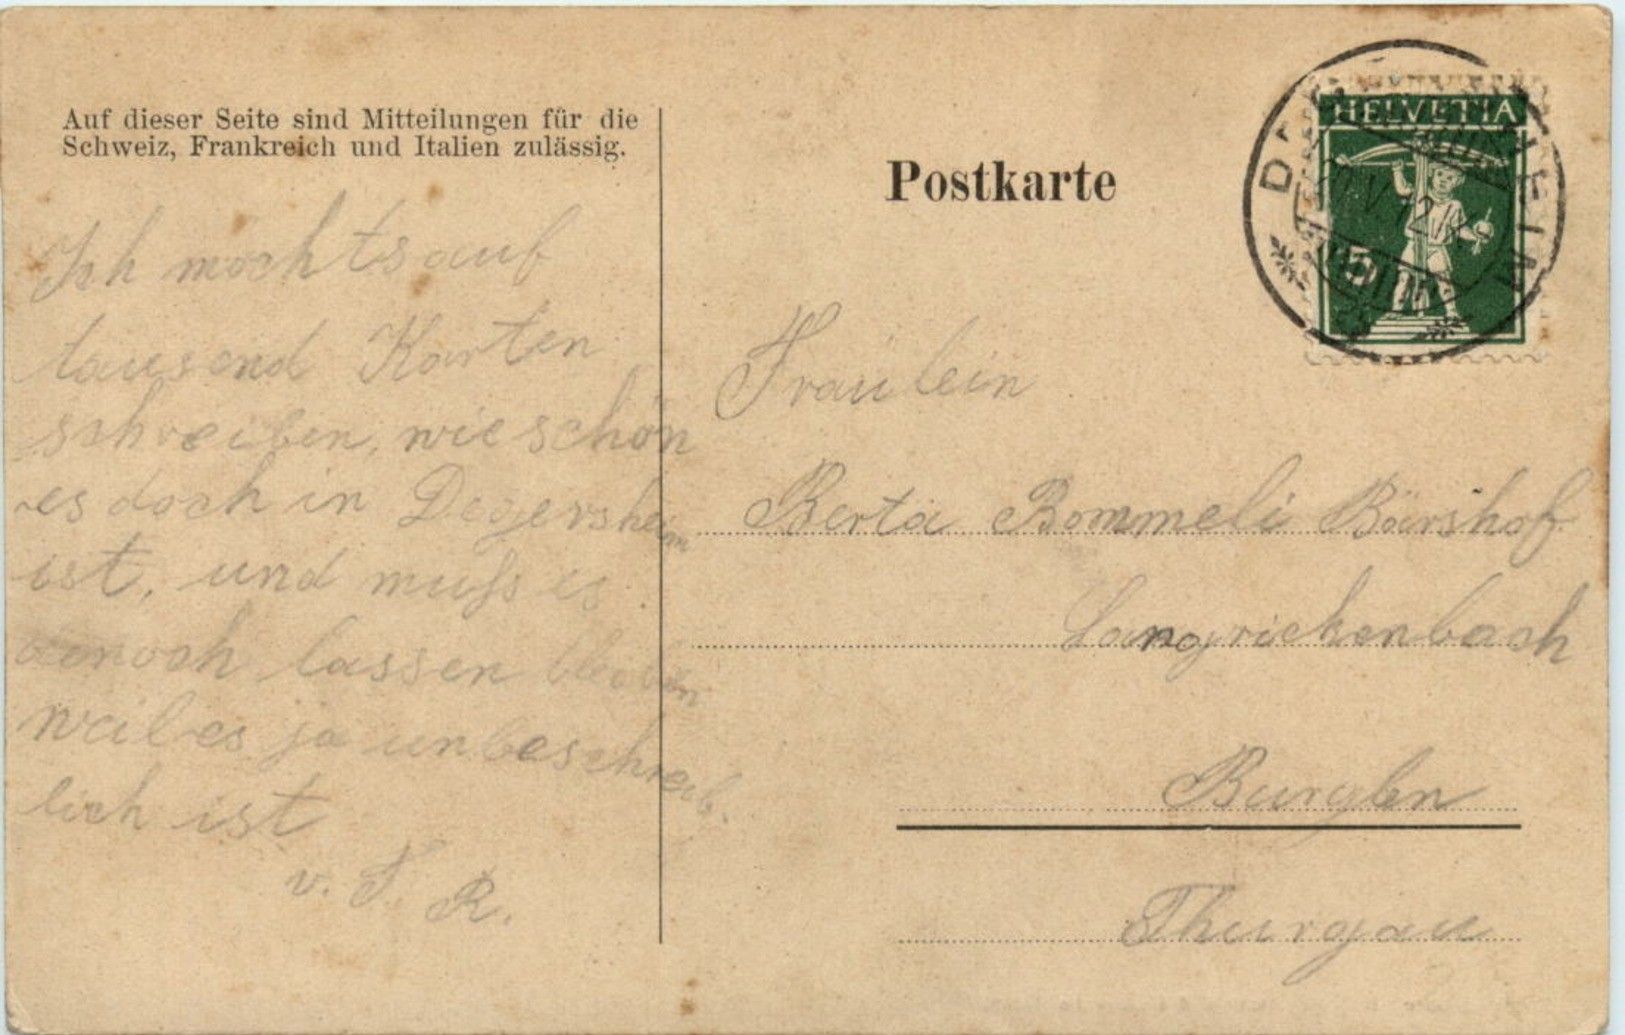 Auf dieser Seite sind Mitteilungen für die
Schweiz, Frankreich und Italien zulässig.
Ich möchts auf
tausend Karten
schreiben, wie schön
es doch in Degersheim
ist, und muss es
denoch lassen bleiben
weil es ja unbeschreib.
lich ist
v. F. R.
Postkarte
HELVETIA
5
Fräulein
Berta Bommeli Bärshof
Langrickenbach
Burglen
Thurgau